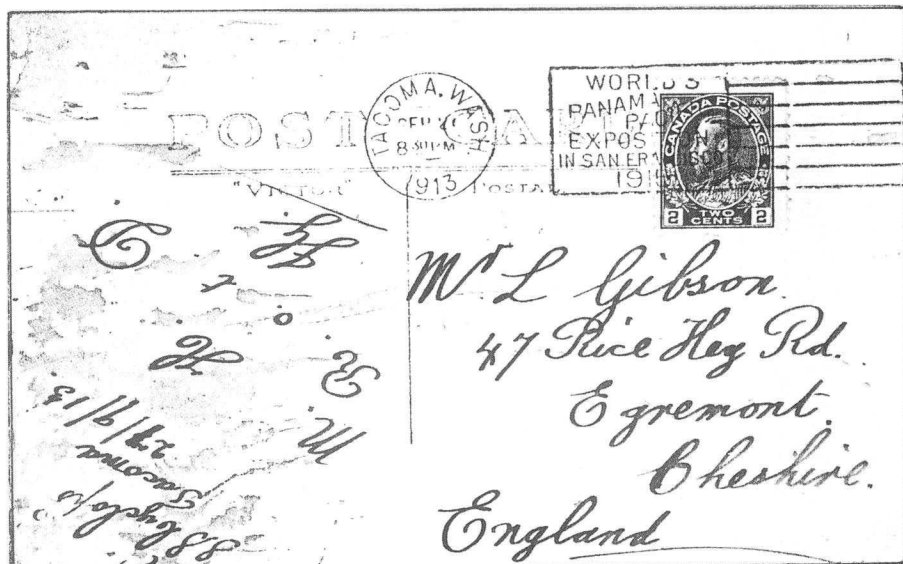 POST CARD
"VICTOR" POSTAL
TACOMA, WASH.
SEP
8 30 PM
1913
WORLD'S
PANAMA
PAC
EXPOSITION
IN SAN FRANCISCO
191
CANADA POSTAGE
2 TWO CENTS 2
Mr L Gibson
47 Rice Hey Rd.
Egremont
Cheshire.
England
S.S. Cyclops
Tacoma
29/9/13